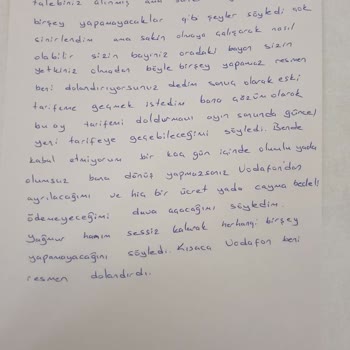 talebiniz alınmış ama
birşey yapamayacaklar gibi şeyler söyledi çok
sinirlendim ama sakin olmaya çalışarak nasıl
olabilir sizin bayiniz oradaki bayan sizin
yetkiniz olmadan böyle birşey yapamaz resmen
beni dolandırıyorsunuz dedim sonuç olarak eski
tarifeme geçmek istedim bana çözüm olarak
bu ay tarifemi doldurmamı ayın sonunda güncel
yeni tarifeye geçebileceğimi söyledi. Bende
kabul etmiyorum bir kaç gün içinde olumlu yada
olumsuz bana dönüş yapmazsanız Vodafon'dan
ayrılacağımı ve hiç bir ücret yada cayma bedeli
ödemeyeceğimi dava açacağımı söyledim.
Yağmur hanım sessiz kalarak herhangi birşey
yapamayacağını söyledi. Kısaca Vodafon beni
resmen dolandırdı.